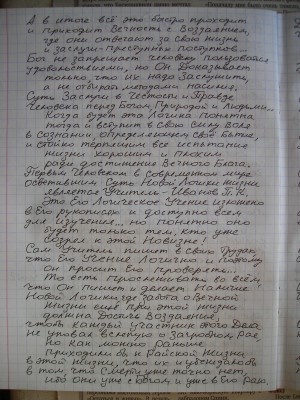 А в итоге всё это быстро проходит
и приходит Вечность с Воздаянием,
где они отвечают за свою жизнь
и заслуги-преступных поступков...
Бог не запрещает человеку пользоваться
удовольствиями, но Он доказывает
только, что их надо Заслужить,
а не отбирать у других насилием.
Суть Заслуги в Честности и Правде
Человека перед Богом, Природой и Людьми...
Когда будет эта Логика понятна
тогда и вступит в Свою Силу Воля
в Сознании, определяющем своё Бытие,
и стойко терпящим все испытание
жизни хорошим и плохим
ради достижение Вечного Блага.
Первым Человеком в современном мире
осветившим Суть Новой Логики Жизни
является Учитель - Иванов П.К.
Это Его Логическое Учение изложено
в Его Рукописях и доступно всем
для изучения... но понятно оно
будет только тем, кто уже
созрел к этой Новизне!
Сам Учитель пишет в своих Трудах,
что Его Учение Логично и поэтому
он просит Его проверять...
То есть прослеживать во всём,
что Он пишет и делает Наличие
Новой Логики, где работа о Вечной
Жизни ещё при этой жизни
должна Давать Воздаяние,
чтобы каждый участник этого Дела
не уповал вслепую о Загробном рае,
но как можно раньше
приходил бы к Райской жизни
в этой жизни, что их и убеждало бы
в том, что Смерти уже точно нет,
ибо они уже с Богом и уже в Его Раю.